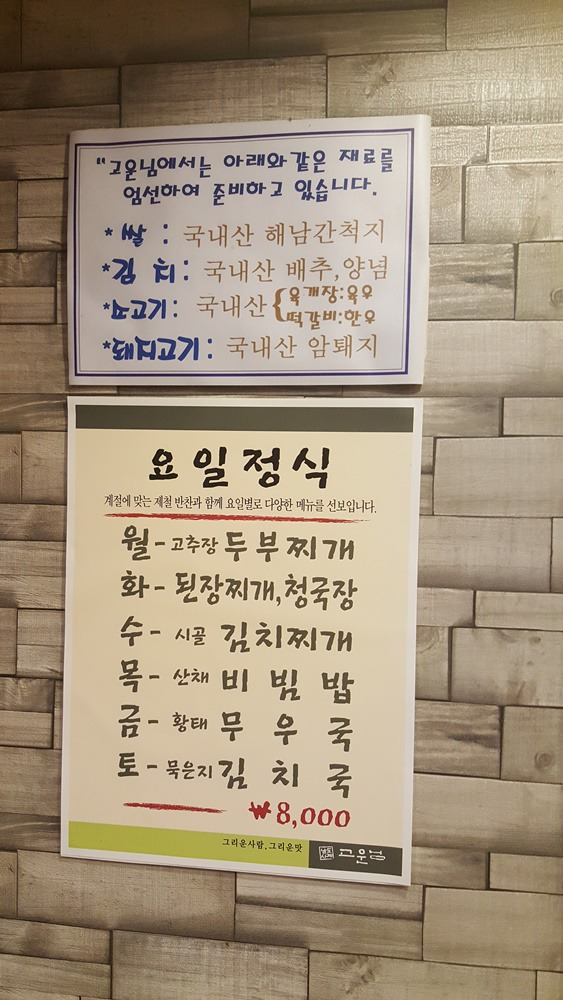 "고운님에서는 아래와같은 재료를
엄선하여 준비하고 있습니다.
*쌀 : 국내산 해남간척지
*김 치 : 국내산 배추,양념
*쇠고기 : 국내산 { 육개장:육우
떡갈비:한우
*돼지고기 : 국내산 암퇘지
요일정식
계절에 맞는 제철 반찬과 함께 요일별로 다양한 메뉴를 선보입니다.
월 - 고추장 두부찌개
화 - 된장찌개,청국장
수 - 시골 김치찌개
목 - 산채 비 빔 밥
금 - 황태 무 우 국
토 - 묵은지 김 치 국
₩8,000
그리운사람, 그리운맛
고운님